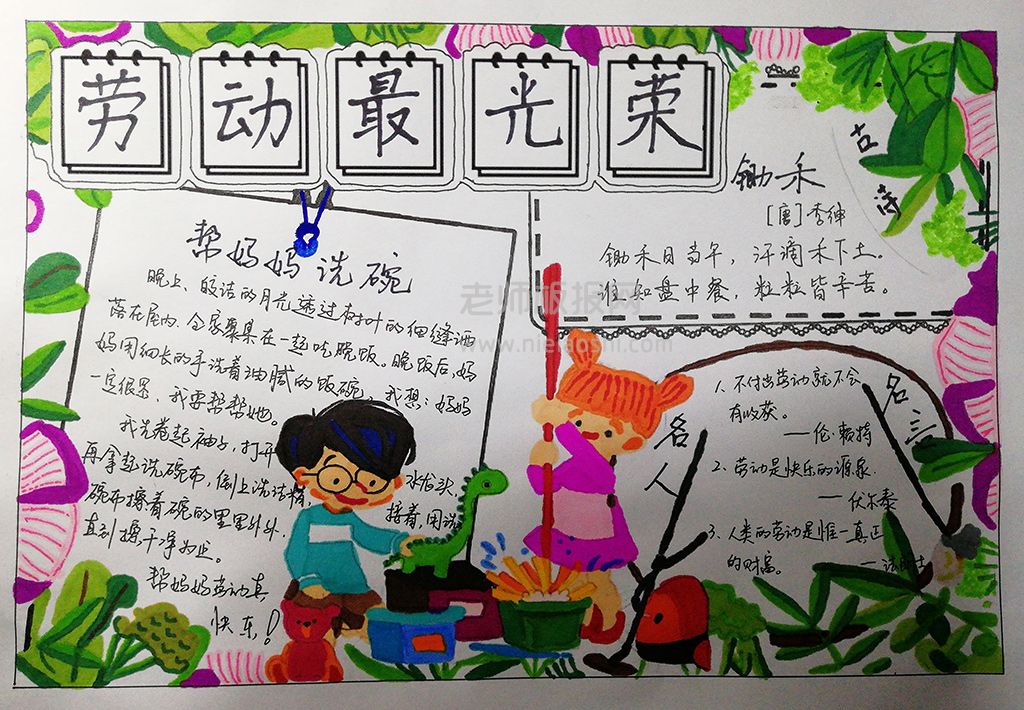 劳动最光荣
帮妈妈洗碗
晚上、皎洁的月光透过树叶的细缝洒
落在屋内.全家聚集在一起吃晚饭。晚饭后,妈
妈用细长的手洗着油腻的饭碗,我想:妈妈
一定很累、我要帮帮她。
我先卷起袖子,打开水龙头
再拿起洗碗布,倒上洗洁精,接着,用洗
碗布擦着碗的里里外外.
直到擦干净为止。
帮妈妈劳动真
快乐!
古诗
锄禾
[唐]李绅
锄禾日当午,汗滴禾下土。
谁知盘中餐,粒粒皆辛苦。
老师板报网
www.
名人
名言
1、不付出劳动就不会
有收获。
——伦·赖特
2、劳动是快乐的源泉.
——伏尔泰
3、人类的劳动是惟一真正
的财富。